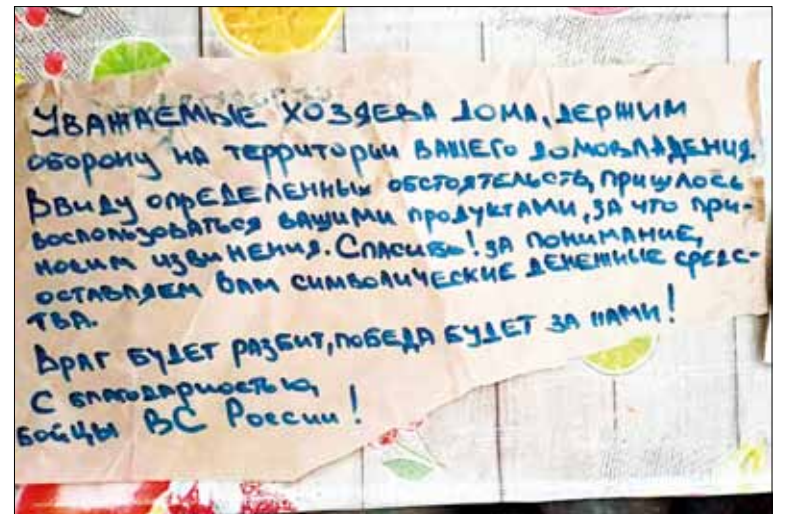 Уважаемые хозяева дома, держим
оборону на территории вашего домовладения.
Ввиду определенных обстоятельств, пришлось
воспользоваться вашими продуктами, за что при-
носим извинения. Спасибо! за понимание,
оставляем вам символические денежные средс-
тва.
Враг будет разбит, победа будет за нами!
С благодарностью,
бойцы ВС России!